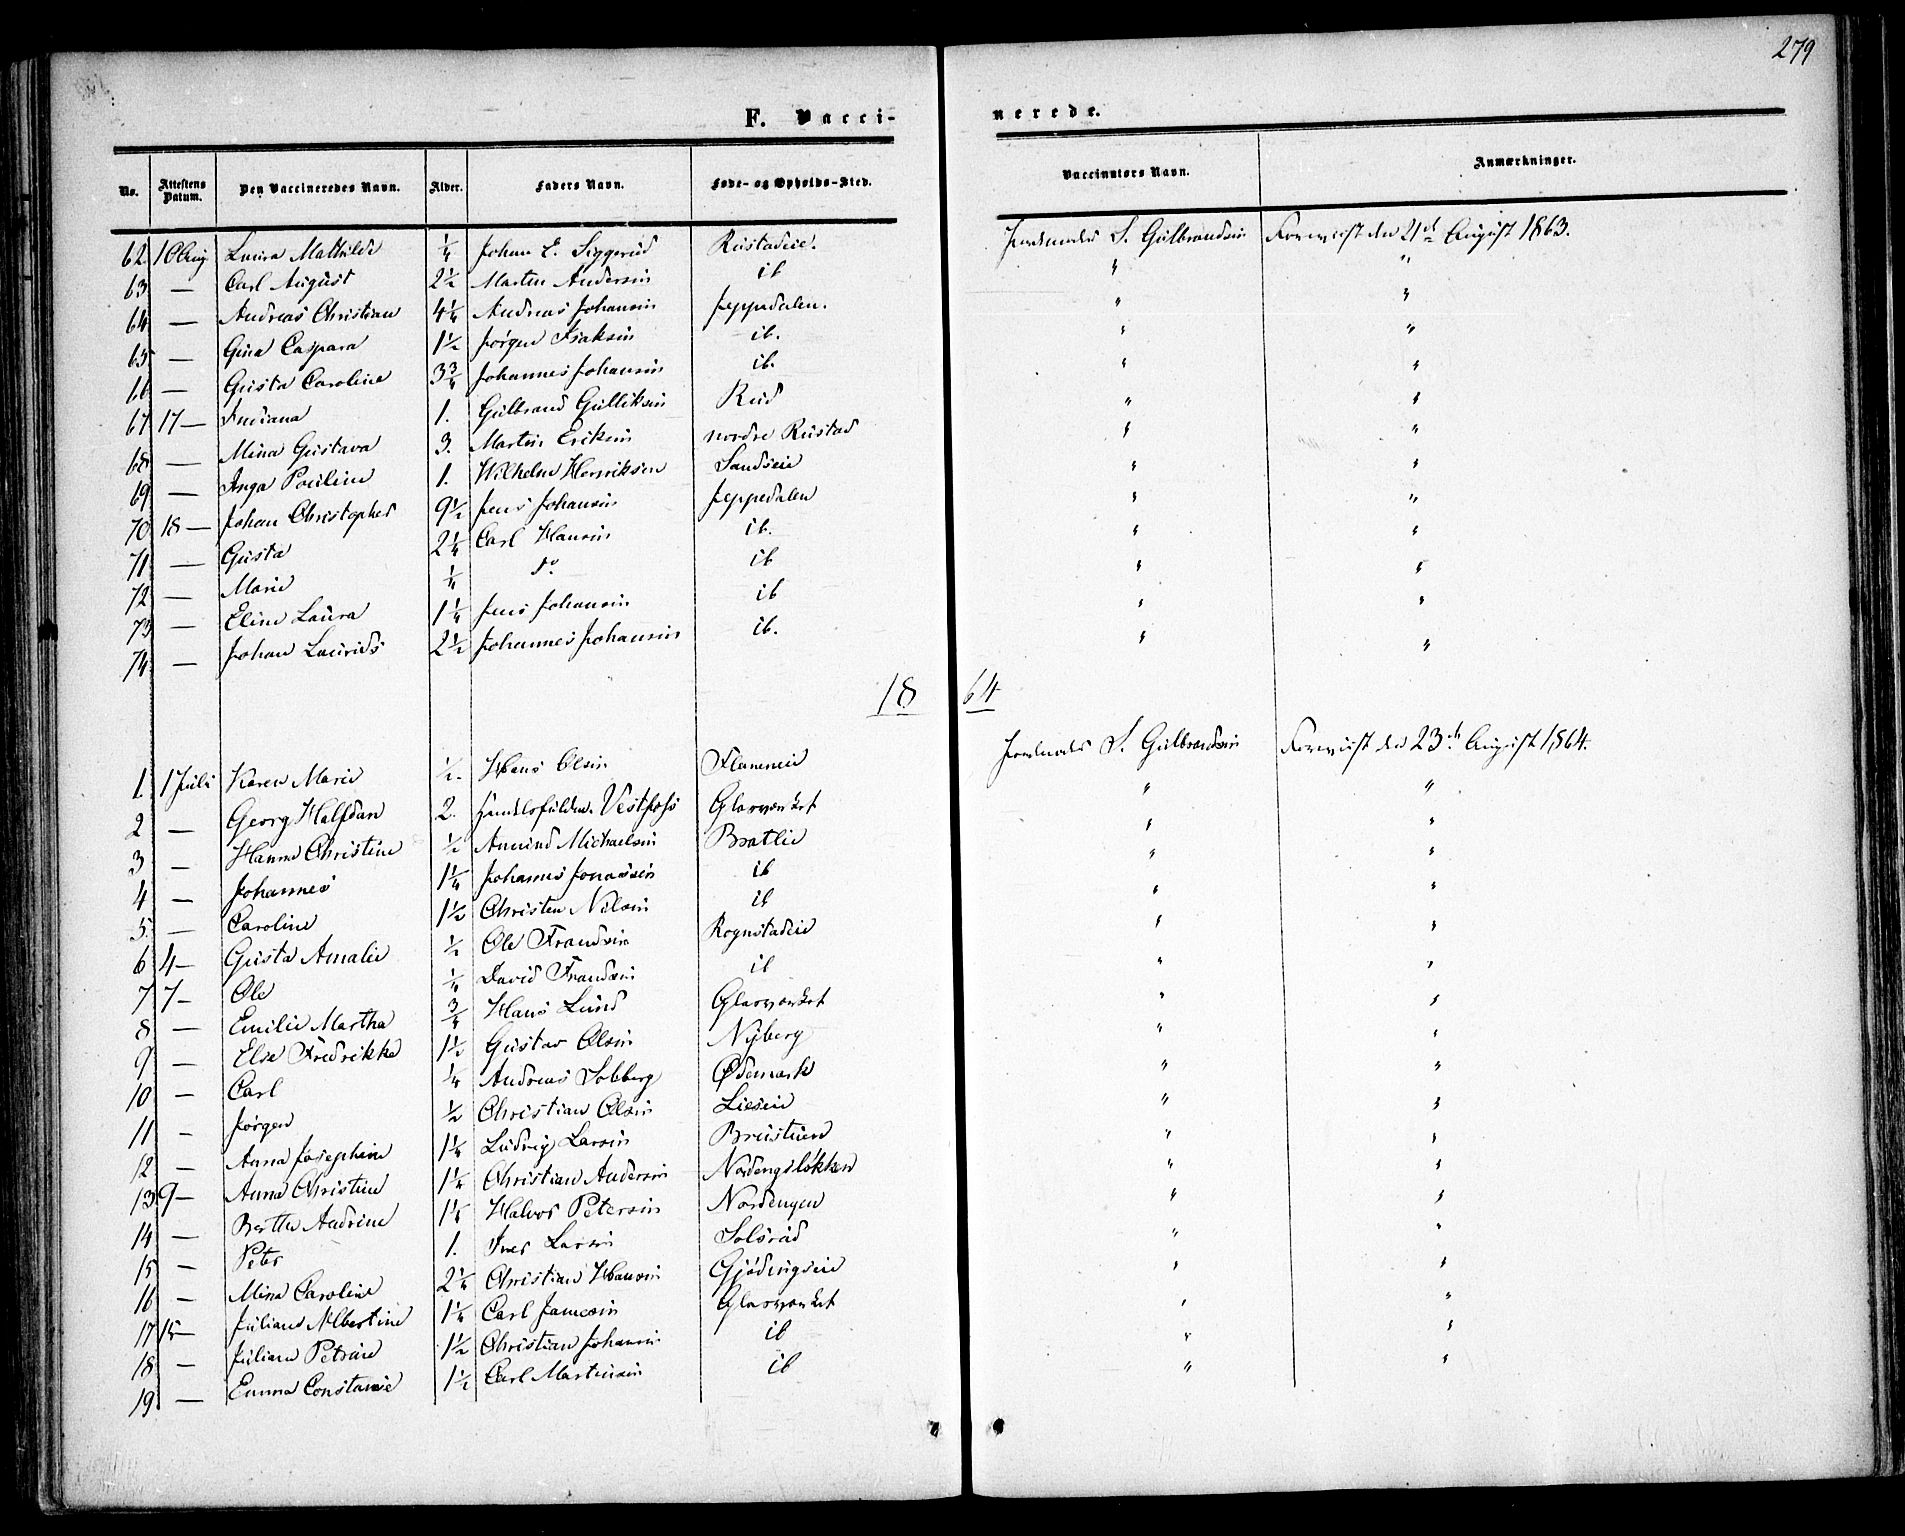 279
F. Vaccinerede.
No. | Attestens Datum. | Den Vaccineredes Navn. | Alder. | Faders Navn. | Føde- og Opholds-Sted. | Vaccinators Navn. | Anmærkninger.
62. | 10 Aug | Laura Mathilde | ¼ | Johan E. Siggerud | Rustadeie. | S. Gulbrandsen | Foreviist den 21de August 1863.
63 | — | Carl August | 2½ | Martin Andersen | ib | " | "
64 | — | Andreas Christian | 4¼ | Andreas Johansen | Jeppedalen. | " | "
65 | — | Gina Caspara | 1½ | Jørgen Isaksen | ib. | " | "
66 | — | Gusta Caroline | 3¾ | Johannes Johansen | ib. | " | "
67 | 17 — | Indiana | 1. | Gulbrand Gulliksen | Rud | " | "
68 | — | Mina Gustava | 3. | Martin Eriksen | nordre Rustad | " | "
69 | — | Inga Pauline | 1. | Wilhelm Henriksen | Sandseie | " | "
70 | 18 — | Johan Christopher | 9½ | Jens Johansen | Jeppedalen | " | "
71 | — | Gusta | 2¼ | Carl Hansen | ib. | " | "
72 | — | Marie | ¼ | do | ib | " | "
73 | — | Eline Laura | 1¼ | Jens Johansen | ib | " | "
74 | — | Johan Laurids | 2½ | Johannes Johansen | ib. | " | "
1864
1. | 1 Juli | Karen Marie | ½. | Hans Olsen | Flaneneie | S. Gulbrandsen | Foreviist den 23de August 1864.
2 | — | Georg Halfdan | 2. | Handelsfuldm. Vestfoss | Glasværket | " | "
3 | — | Hanna Christine | ½ | Amund Michaelsen | Bratlie | " | "
4 | — | Johannes | 1¼ | Johannes Jonassen | ib | " | "
5. | — | Caroline | 1½ | Christen Nilsen | ib | " | "
6 | 4 — | Gusta Amalie | ½ | Ole Frandsen | Rognstadeie | " | "
7 | 7 — | Ole | ¼ | David Frandsen | ib | " | "
8 | — | Emilie Martha | ¾ | Hans Lund | Glasværket | " | "
9 | — | Else Fredrikke | 1½ | Gustav Olsen | Nyberg | " | "
10 | — | Carl | ¼ | Andreas Solberg | Ødemark | " | "
11 | — | Jørgen | ½ | Christian Olsen | Lieseie | " | "
12 | — | Anna Josephine | 1¼ | Ludvig Larsen | Brustuen | " | "
13 | 9 — | Anna Christine | 1¼ | Christian Andersen | Nordengsløkken | " | "
14 | — | Berthe Andrine | 1¼ | Halvor Petersen | Nordengen | " | "
15 | — | Peter | 1. | Iver Larsen | Solsrud | " | "
16 | — | Mina Caroline | 2¼ | Christian Hansen | Gjødingseie | " | "
17 | 15 — | Juliane Albertine | 1¼ | Carl Jamesen | Glasværket | " | "
18 | — | Juliane Petrine | 1½ | Christian Johansen | ib | " | "
19 | — | Emma Constance | 1½ | Carl Martinsen | ib | " | "